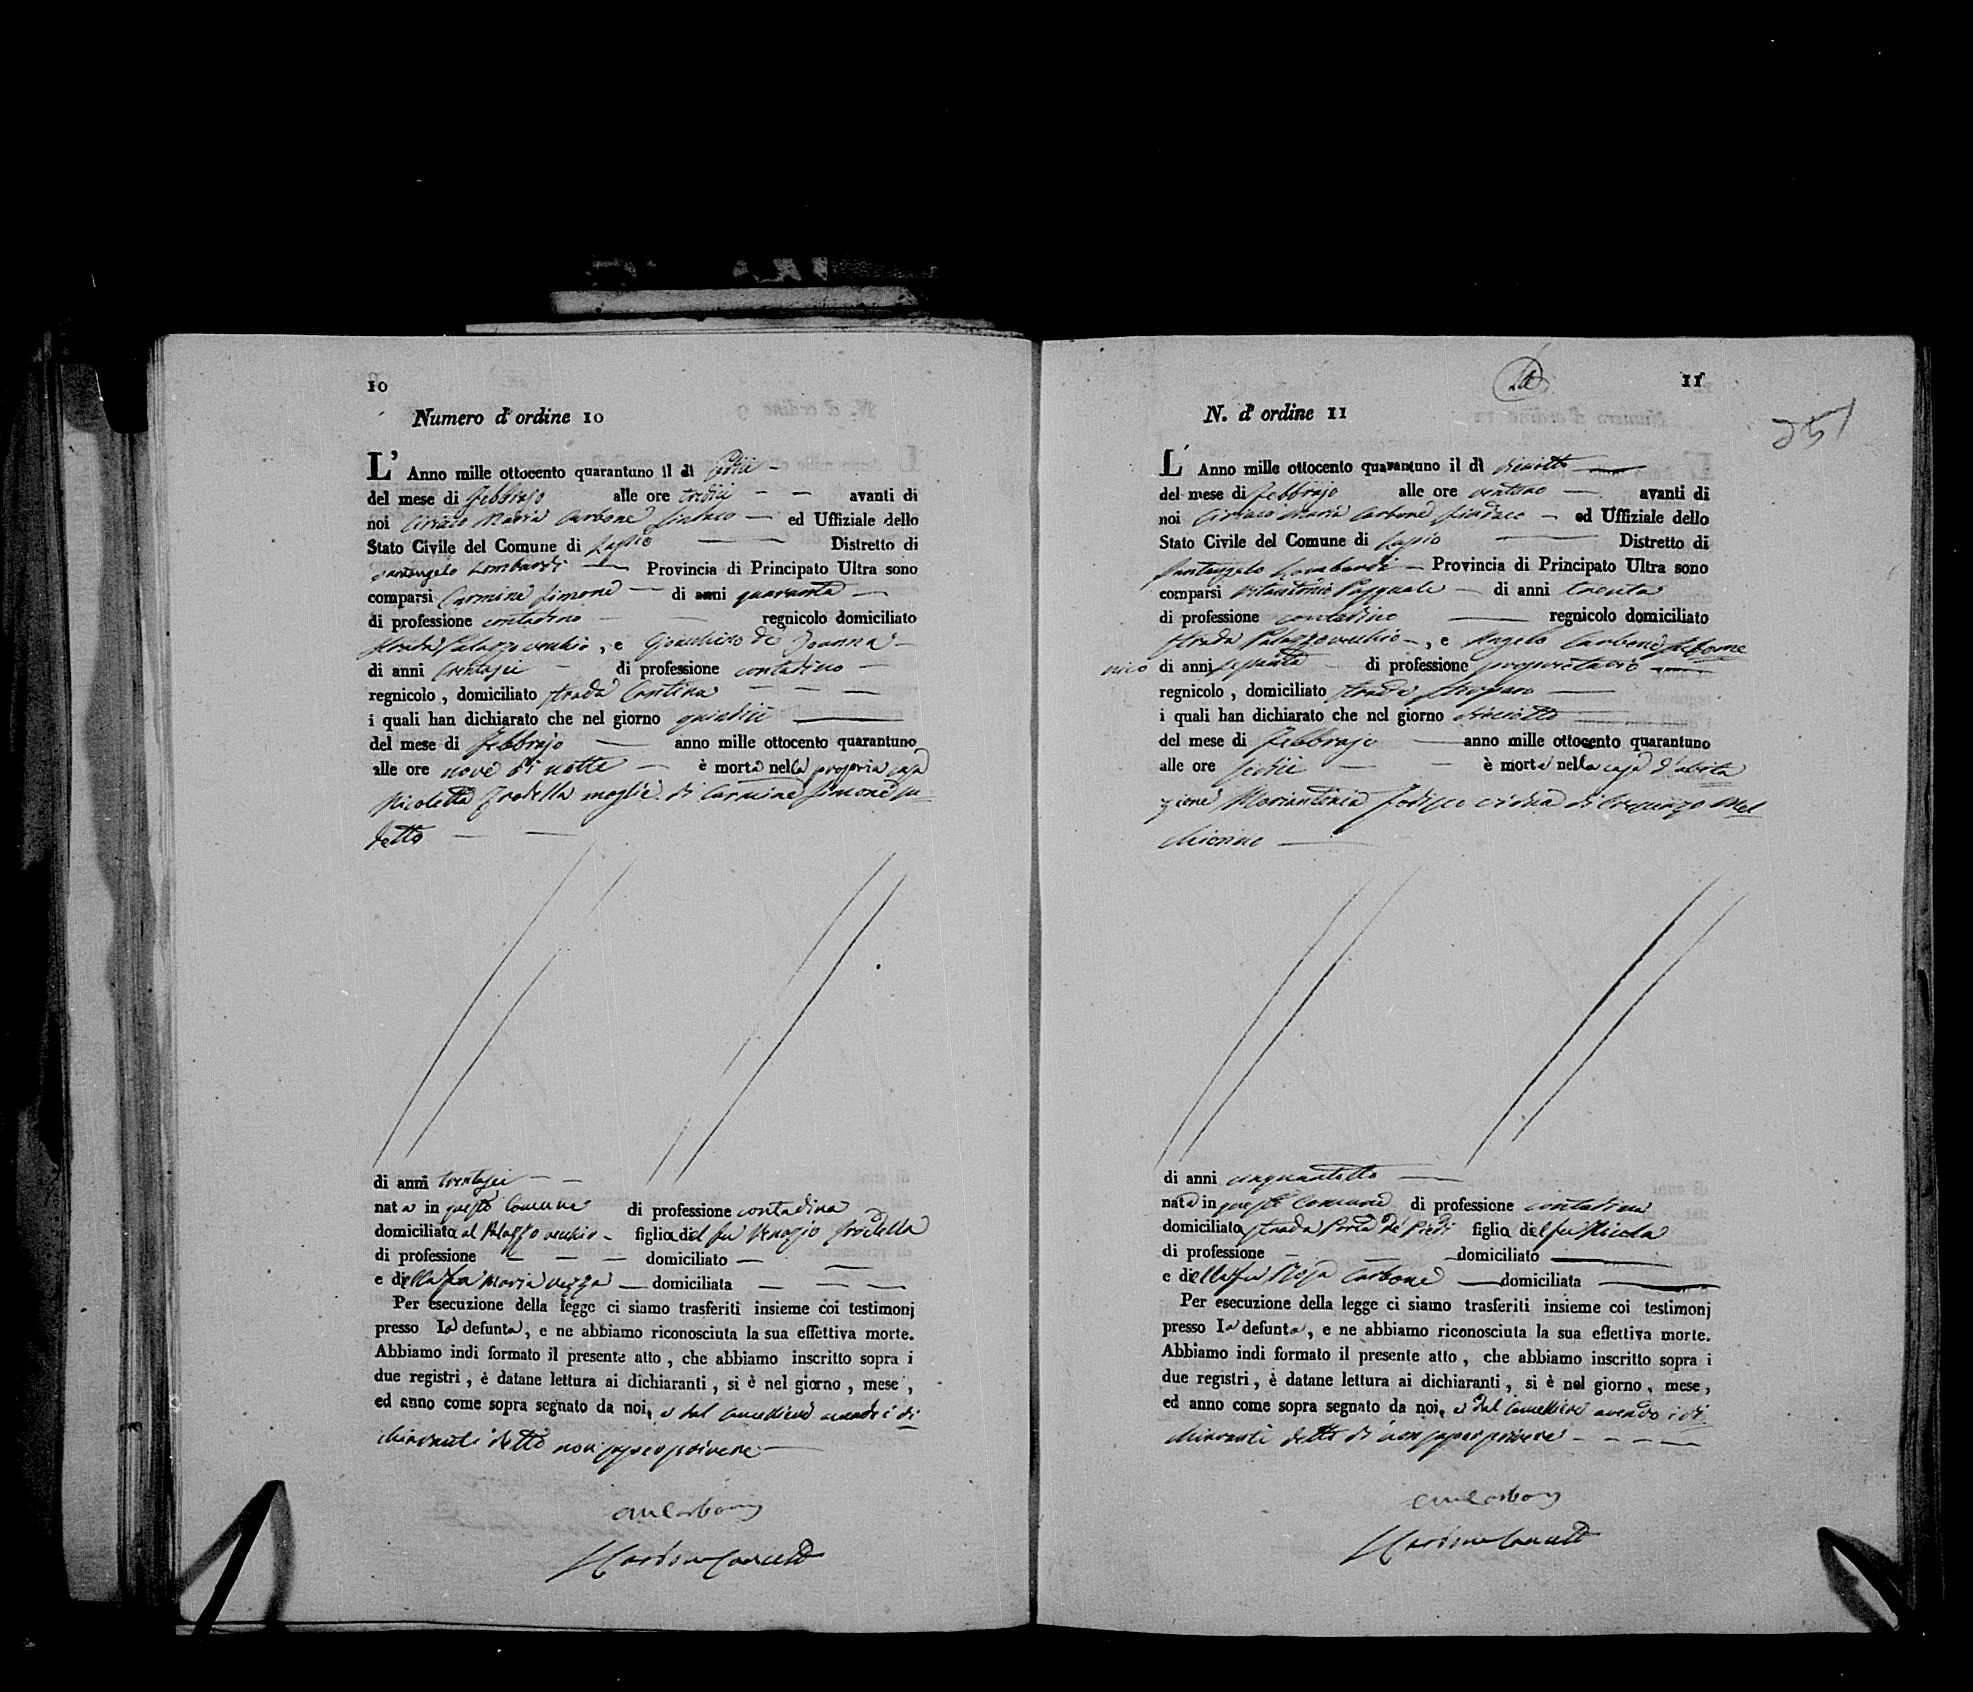 10
Numero d'ordine 10
L' Anno mille ottocento quarantuno il dì sedici
del mese di Febbrajo alle ore tredici avanti di
noi Ciriaco Maria Carbone Sindaco ed Uffiziale dello
Stato Civile del Comune di Lapio Distretto di
Santangelo Lombardi Provincia di Principato Ultra sono
comparsi Carmine Simone di anni quaranta
di professione contadino regnicolo domiciliato
strada Palazzo vecchio, e Gioacchino de Joanna
di anni trentasei di professione contadino
regnicolo, domiciliato strada Cantina
i quali han dichiarato che nel giorno quindici
del mese di Febbrajo anno mille ottocento quarantuno
alle ore nove di notte è morta nella propria casa
Nicoletta Frodella moglie di Carmine Simone su
detto
di anni trentasei
nata in questo Comune di professione contadina
domiciliata al Palazzo vecchio figlia del fu Frodella
di professione domiciliato
e della fu Maria domiciliata
Per esecuzione della legge ci siamo trasferiti insieme coi testimonj
presso la defunta, e ne abbiamo riconosciuta la sua effettiva morte.
Abbiamo indi formato il presente atto, che abbiamo inscritto sopra i
due registri, è datane lettura ai dichiaranti, si è nel giorno, mese,
ed anno come sopra segnato da noi, e dal Cancelliere avendo i di
chiaranti detto non saper scrivere
CM Carbone
Carbone Cancell
11
N. d'ordine 11
L' Anno mille ottocento quarantuno il dì diciotto
del mese di Febbrajo alle ore ventuno avanti di
noi Ciriaco Maria Carbone Sindaco ed Uffiziale dello
Stato Civile del Comune di Lapio Distretto di
Santangelo Lombardi Provincia di Principato Ultra sono
comparsi Vitantonio Pasquale di anni trenta
di professione contadino regnicolo domiciliato
strada Palazzo vecchio, e Angelo Carbone
di anni sessanta di professione proprietario
regnicolo, domiciliato strada
i quali han dichiarato che nel giorno diciotto
del mese di Febbrajo anno mille ottocento quarantuno
alle ore sedici è morta nella casa d'abita
zione Mariantonia vedova di Crescenzo Mel
chionno
di anni cinquantotto
nata in questo Comune di professione contadina
domiciliata strada Porta de Piedi figlia del fu Nicola
di professione domiciliato
e della fu Rosa Carbone domiciliata
Per esecuzione della legge ci siamo trasferiti insieme coi testimonj
presso la defunta, e ne abbiamo riconosciuta la sua effettiva morte.
Abbiamo indi formato il presente atto, che abbiamo inscritto sopra i
due registri, è datane lettura ai dichiaranti, si è nel giorno, mese,
ed anno come sopra segnato da noi, e dal Cancelliere avendo i di
chiaranti detto di non saper scrivere
CM Carbone
Carbone Cancell